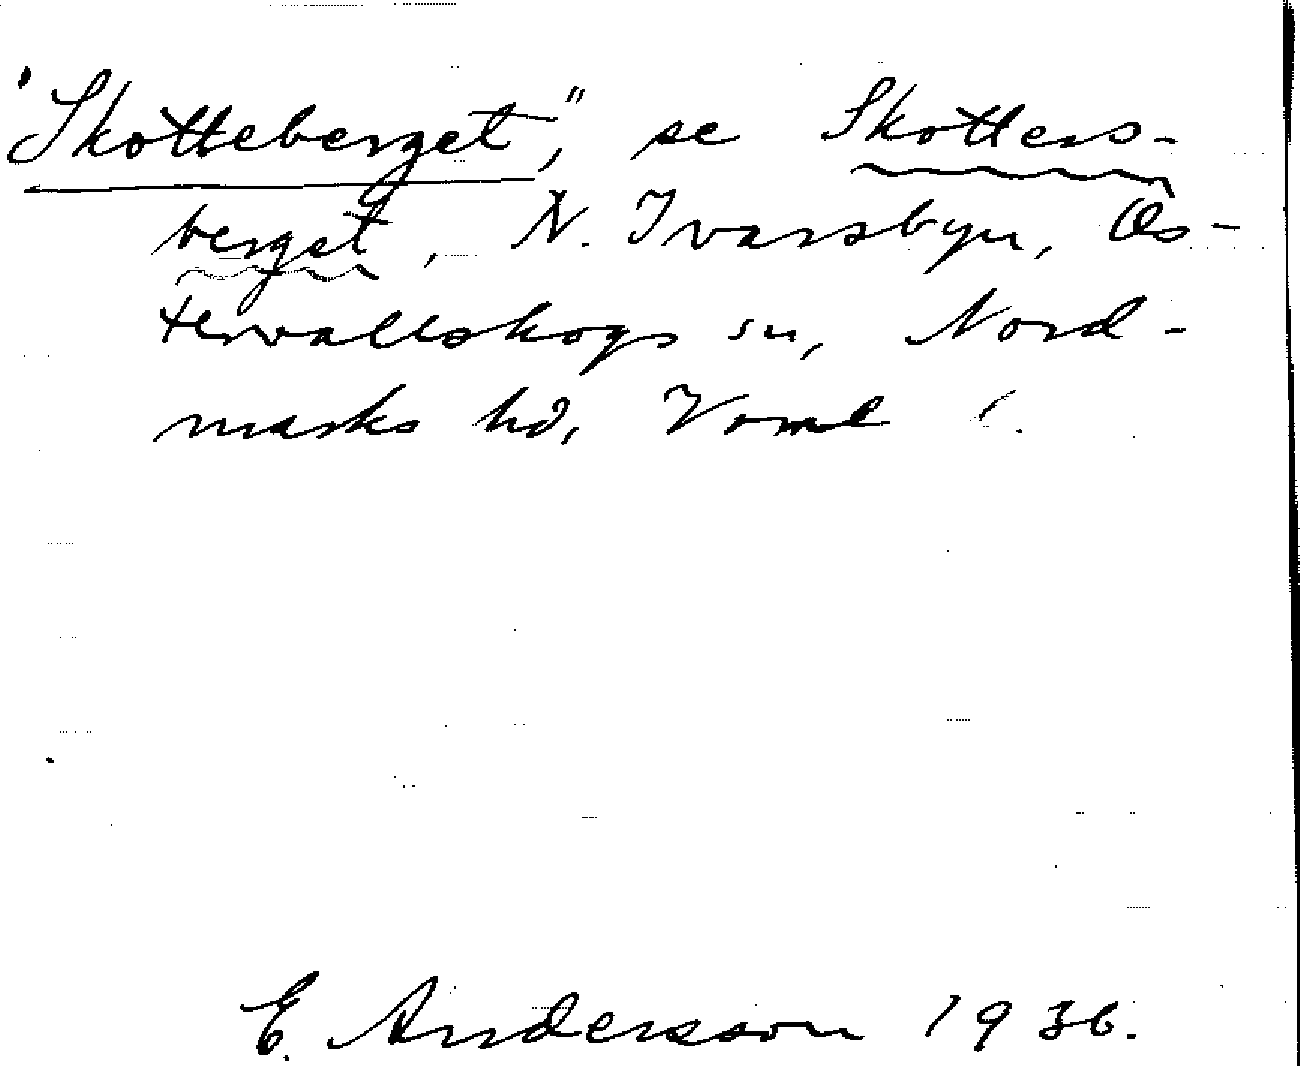 "Skotteberget", se Skotters-
berget, N. Ivarsbyn, Ös-
tervallskogs sn, Nord-
marks hd, Vrml.
E. Andersson 1936.